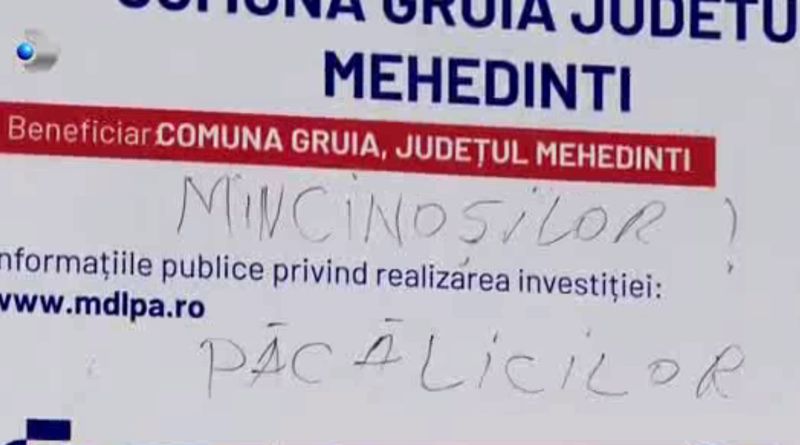 COMUNA GRUIA JUDEȚU
MEHEDINTI
Beneficiar: COMUNA GRUIA, JUDEȚUL MEHEDINTI
MINCINOȘILOR !
nformațiile publice privind realizarea investiției:
www.mdlpa.ro
PĂCĂLICILOR